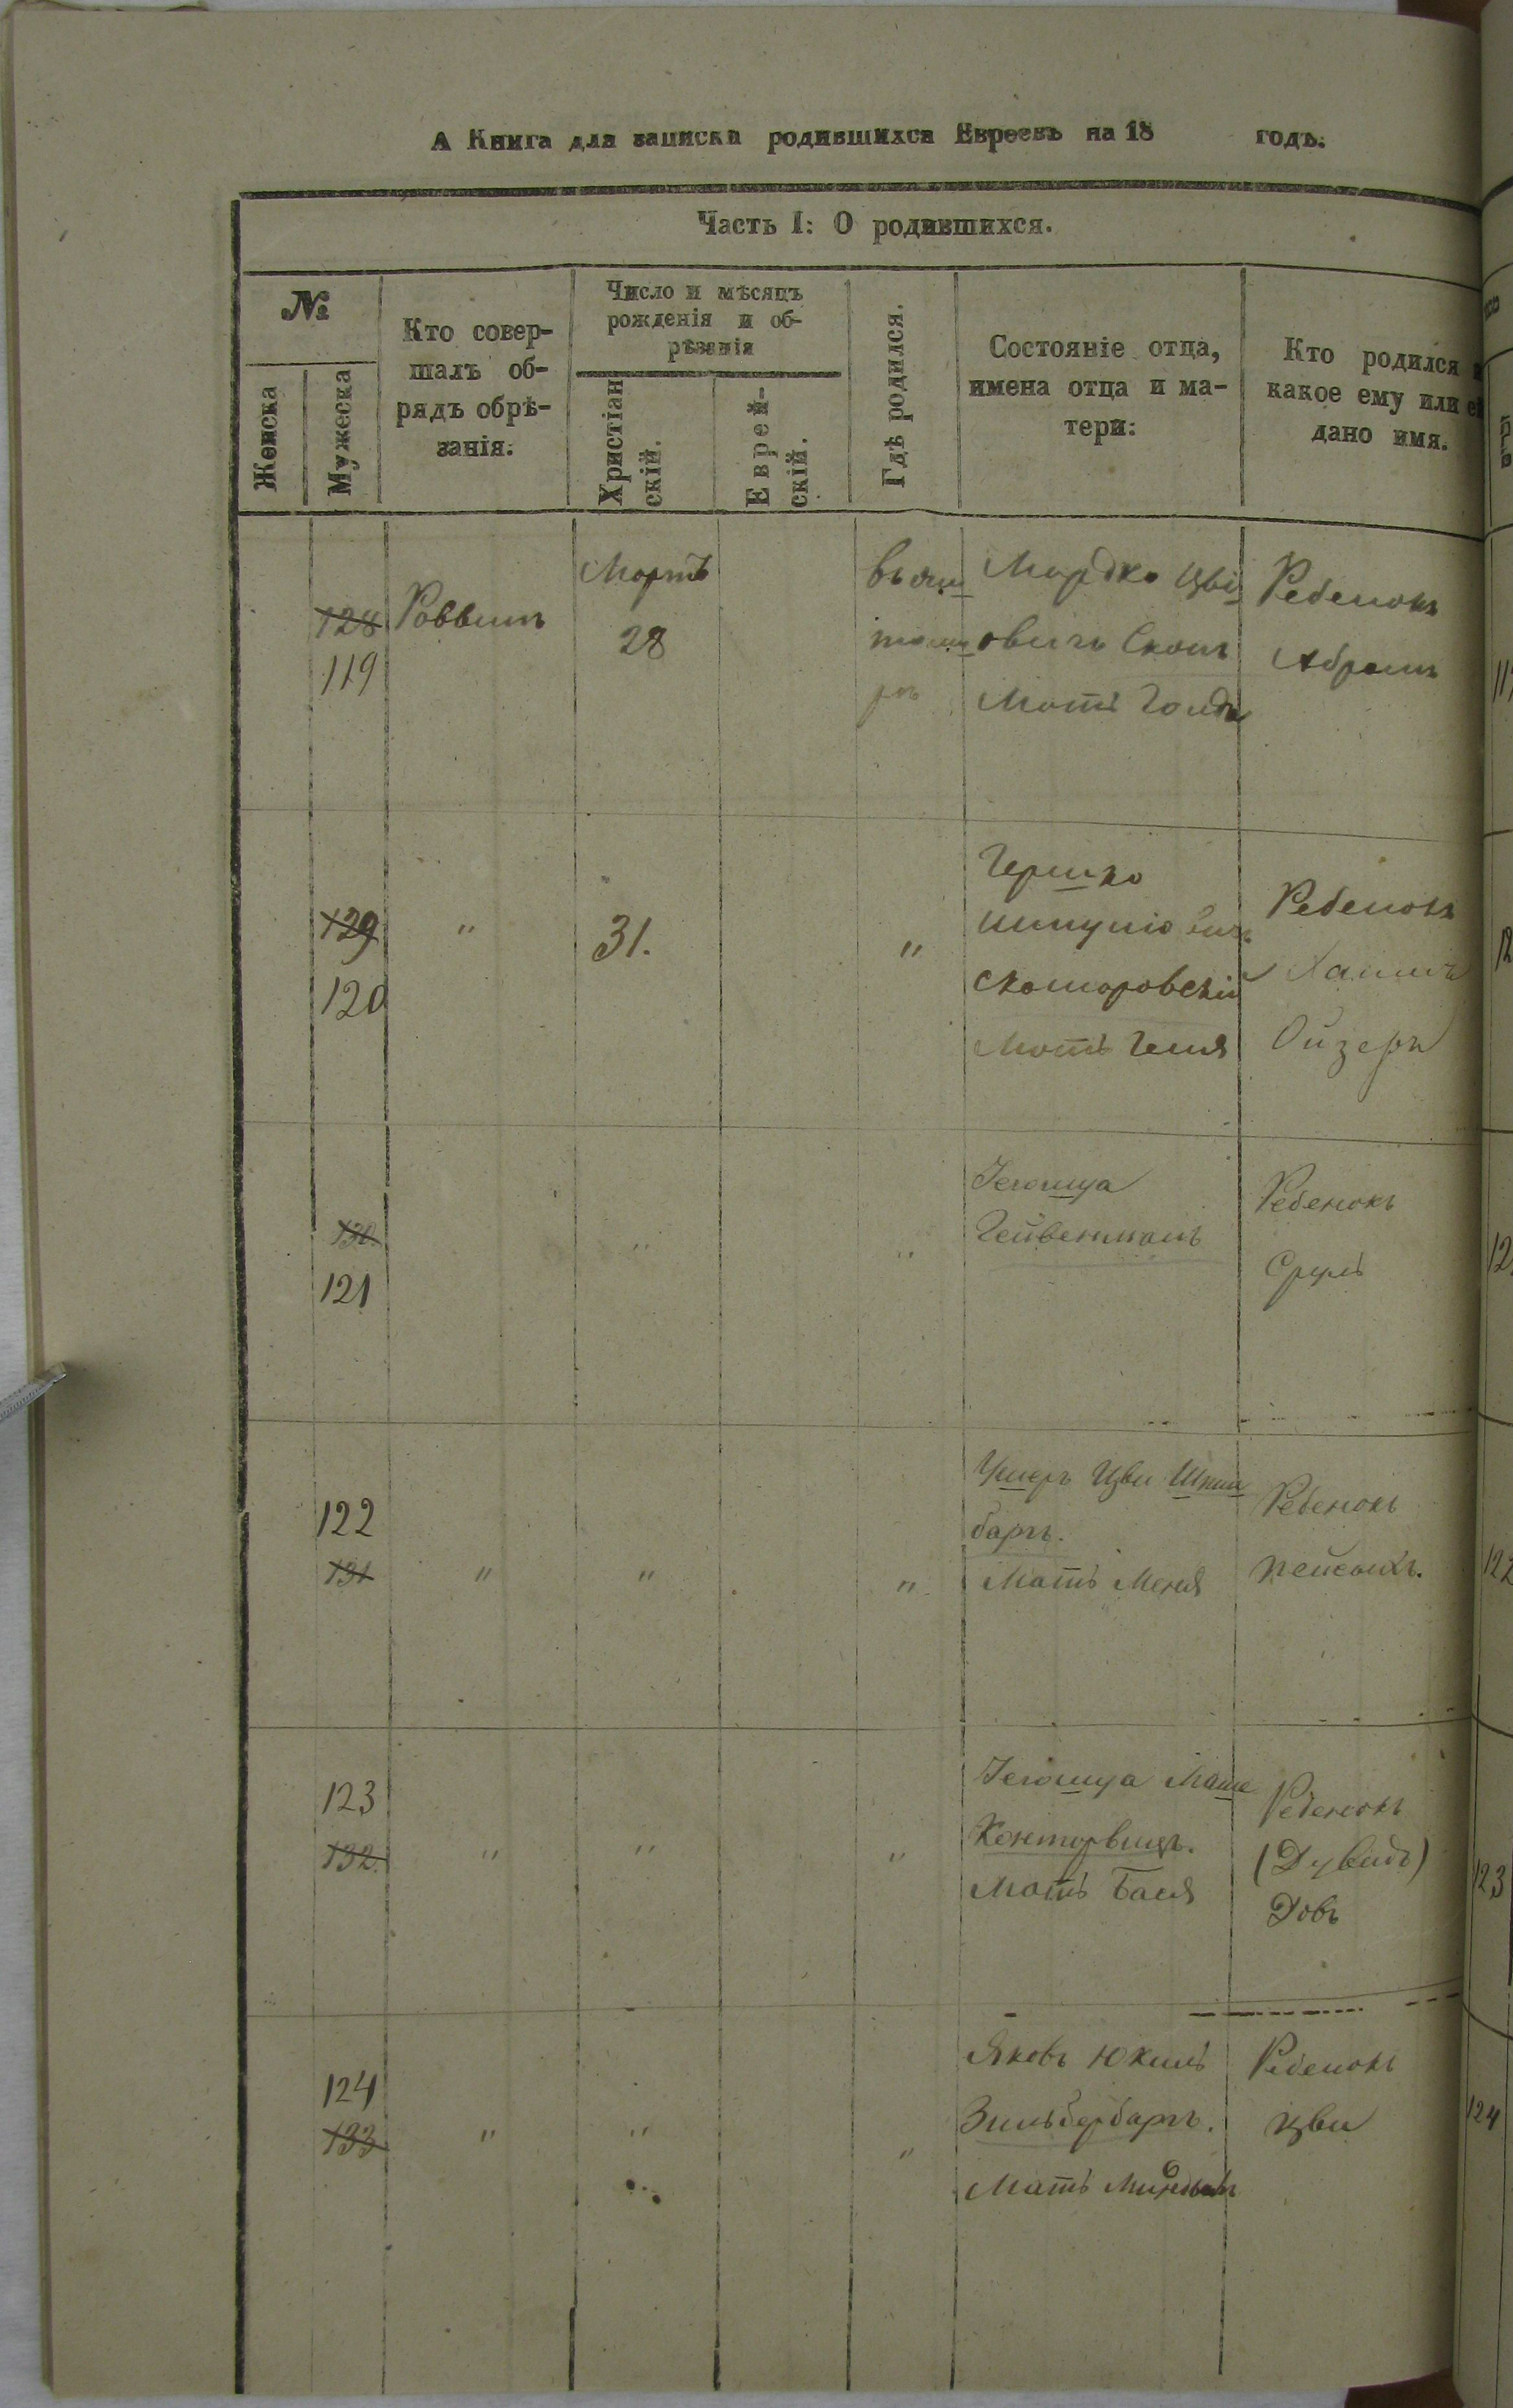 А Книга для записки родившихся Евреевъ на 18 годъ.
Часть I: О родившихся.
№
Женска
Мужеска
Кто совер-
шалъ об-
рядъ обрѣ-
занія:
Число и мѣсяцъ
рожденія и об-
рѣзанія
Христіан
скій.
Еврей-
скій.
Гдѣ родился.
Состояніе отца,
имена отца и ма-
тери:
Кто родился и
какое ему или ей
дано имя.
128
119
Раввинъ
Мартъ
28
Мордко Цві
овичъ
Мать Голда
Ребенокъ
Абрамъ
129
120
"
31.
"
Гершко
Скоморовскій
Мать Геня
Ребенокъ
Хаимъ
Ойзеръ
130
121
"
"
Іегошуа
Гейвентманъ
Ребенокъ
Сруль
122
131
"
"
"
Ушеръ Цви Шпил
баргъ.
Мать Меня
Ребенокъ
Пейсахъ.
123
132
"
"
"
Іегошуа Моше
Конторвицъ.
Мать Бася
Ребенокъ
(Дувидъ)
Довъ
124
133
"
"
"
Яковъ Юкиль
Зильбербаргъ.
Мать
Ребенокъ
Цви
12
122
123
124